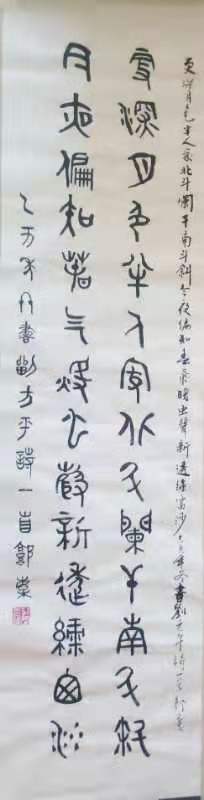 更深月色半人家北斗闌干南斗斜今夜偏知春氣暖虫聲新透綠窗沙年冬書劉方平詩一首
更深月色半人家北斗闌干南斗斜
今夜偏知春气煖虫聲新透綠囱沙
乙年冬書劉方平詩一首郭